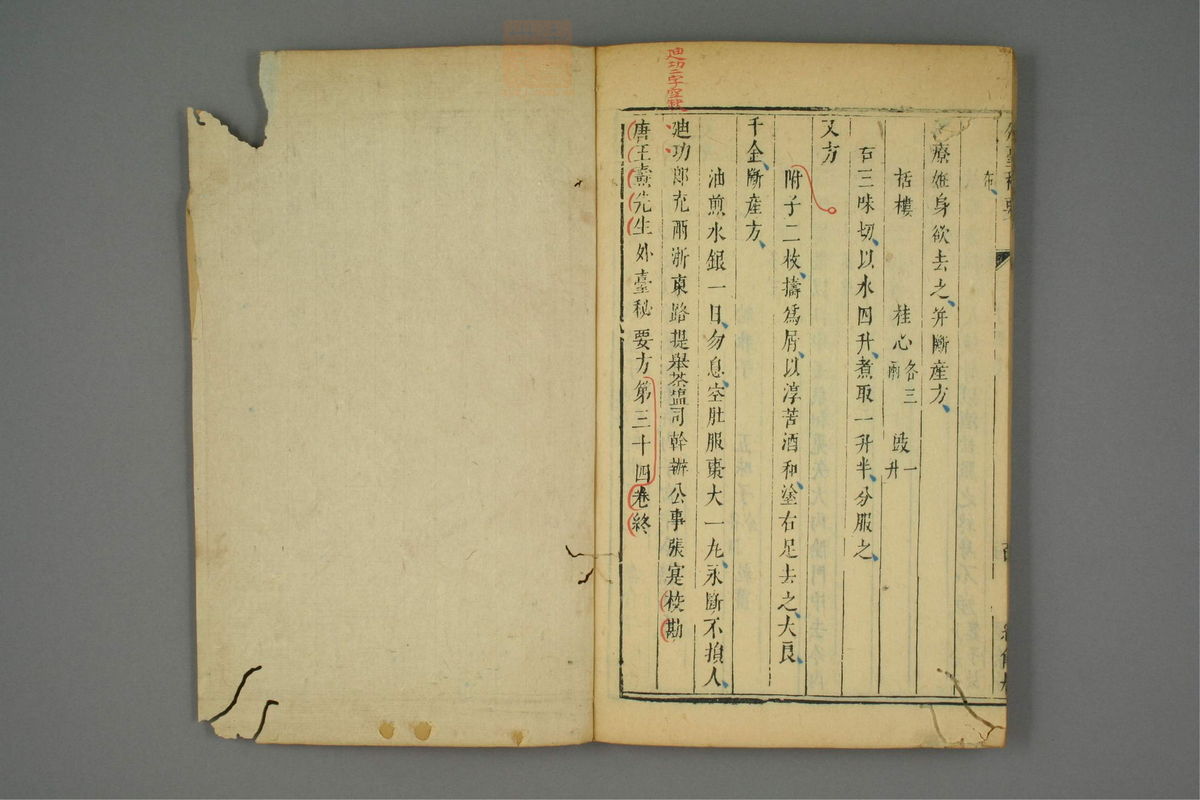 療妊身欲去之并斷産方
栝樓 桂心各三兩 豉一升
右三味切以水四升煮取一升半分服之
又方
附子二枚擣爲屑以淳苦酒和塗右足去之大良
千金斷産方
油煎水銀一日勿息空肚服棗大一丸永斷不損人
迪功郎充兩浙東路提舉茶鹽司幹辦公事張寔校勘
唐王燾先生外臺秘要方第三十四卷終
迪功二字空